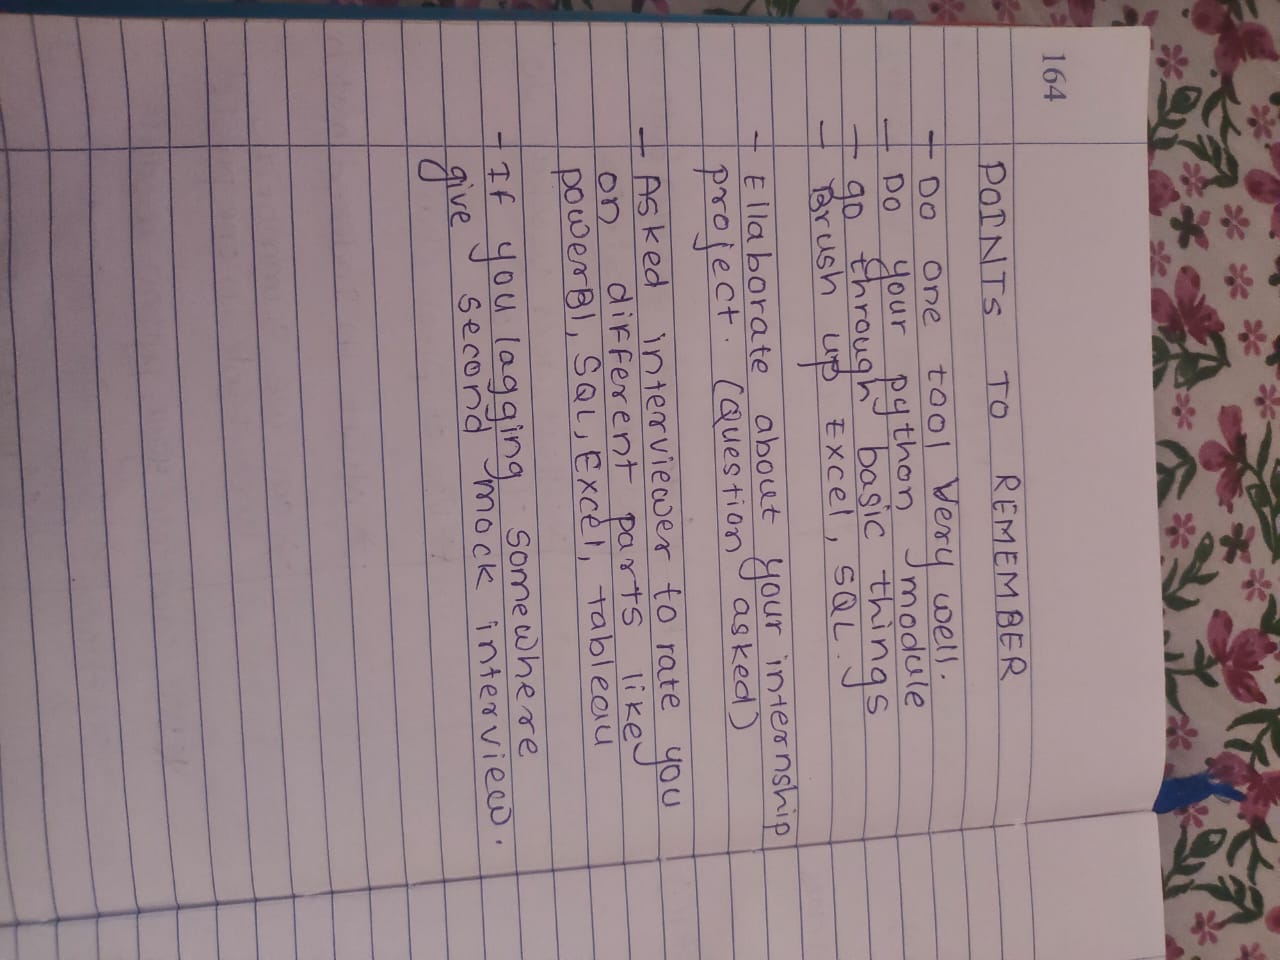 164
POINTS TO REMEMBER
- Do one tool Very well.
- Do your python module
- go through basic things
- Brush up Excel, SQL.
- Ellaborate about your internship
project. (Question asked)
- Asked interviewer to rate you
on different parts like
powerBI, SQL, Excel, tableau
- If you lagging somewhere
give second mock interview.